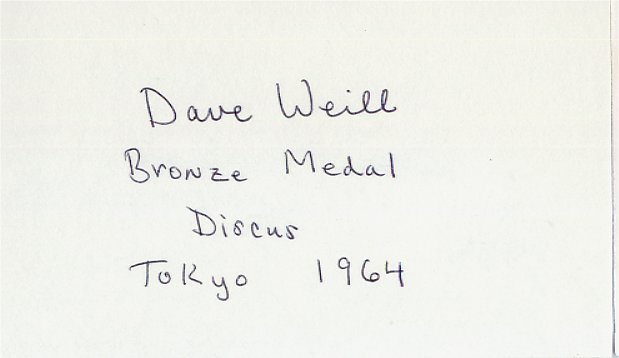 Dave Weill
Bronze Medal
Discus
Tokyo 1964